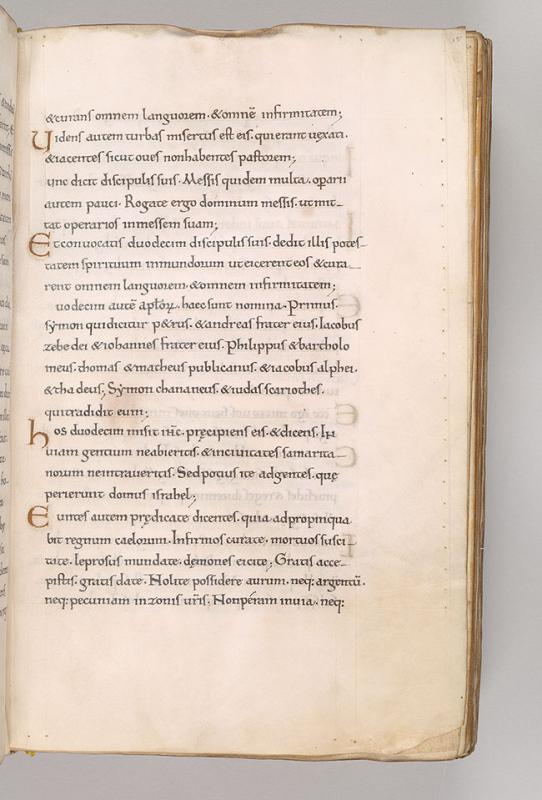 &curans omnem languorem· &omnē infirmitatem;
Uidens autem turbas misertus est eis· quierant uexati·
&iacentes sicut oues nonhabentes pastorem;
unc dicit discipulis suis· Messis quidem multa· oparii
autem pauci· Rogate ergo dominum messis· ut mit-
tat operarios inmessem suam;
Et conuocatis duodecim discipulis suis· dedit illis potes-
tatem spirituum inmundorum ut eicerent eos &cura-
rent omnem languorem· &omnem infirmitatem;
uodecim autē aptōrꝝ haec sunt nomina· Primus·
symon quidicitur p&rus· &andreas frater eius· Iacobus
zebedei &iohannes frater eius· Philippus &bartholo
meus· thomas &matheus publicanus· &iacobus alphei·
&thadeus; Symon chananeus· &iudas scariothes·
quitradidit eum;
hos duodecim misit ihc· pręcipiens eis· &dicens· IN
uiam gentium neabieritis· &inciuitates samarita-
norum neintraueritis· Sed potius ite adgentes· quę
perierunt domus israhel;
Euntes autem prędicate dicentes· quia adpropinqua
bit regnum caelorum· Infirmos curate· mortuos susci-
tate· leprosus mundate· dęmones eicite; Gratis acce-
pistis· gratis date· Nolite possidere aurum· neq: argentū·
neq: pecuniam inzonis uris· Nonpéram inuia· neq: